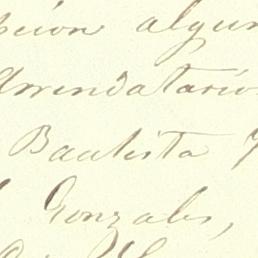 pcion algun
Arrendatario
Bautista
Gonzales,